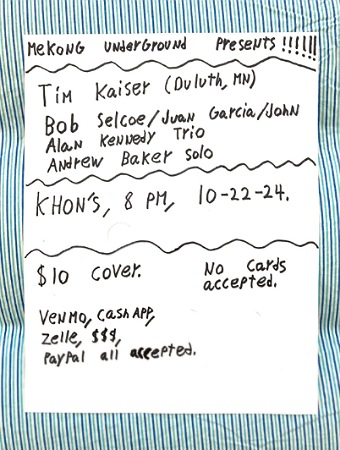 MEKONG UNDERGROUND PRESENTS !!!!!!
TIM KAISER (DULUTH, MN)
BOB SELCOE/JUAN GARCIA/JOHN
ALAN KENNEDY TRIO
ANDREW BAKER SOLO
KHON'S, 8 PM, 10-22-24.
$10 COVER. NO CARDS
ACCEPTED.
VENMO, CASH APP,
ZELLE, $$$,
PAYPAL ALL ACCEPTED.